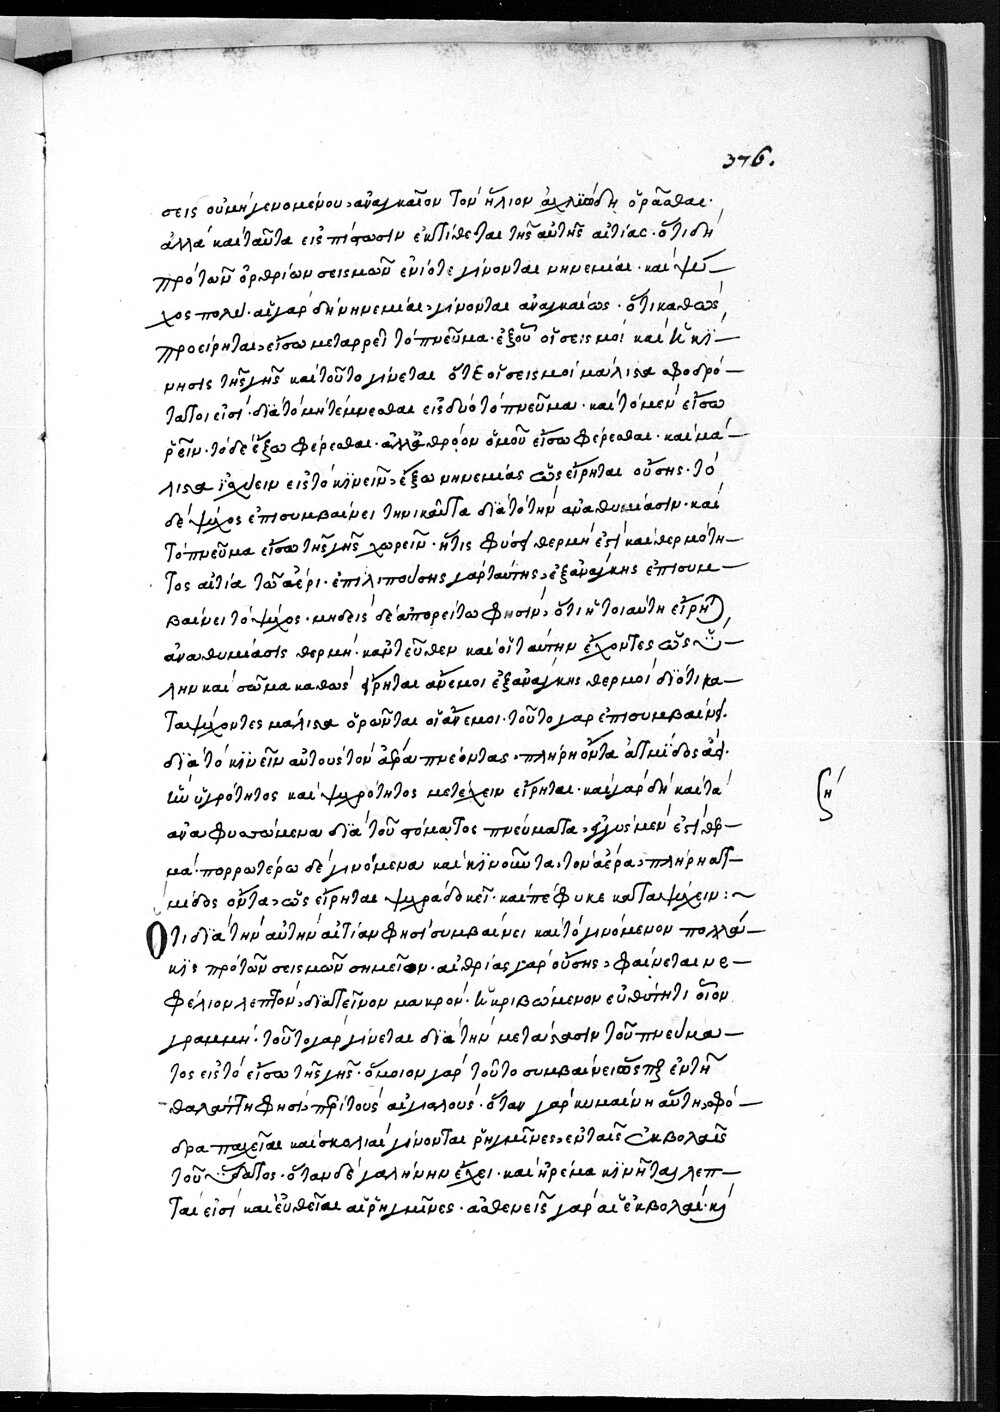 376.
σεις οὐ μὴ γενομένου, ἀναγκαῖον τὸν ἥλιον ἀχλιώδη ὁρᾶσθαι·
ἀλλὰ καὶ ταῦτα εἰς πίστωσιν ἐκτίθεται τῆς αὐτῆς αἰτίας· ὅτι δὴ
πρὸ τῶν ὀρθρίων σεισμῶν ἐνίοτε γίνονται νηνεμίαι· καὶ ψῦ–
χος πολύ· αἱ γὰρ δὴ νηνεμίαι, γίνονται ἀναγκαίως· ὅτι καθὼς
προείρηται, εἴσω μεταρρεῖ τὸ πνεῦμα· ἐξ οὗ οἱ σεισμοὶ καὶ ἡ κί–
νησις τῆς γῆς καὶ τοῦτο γίνεται ὅτε οἱ σεισμοὶ μάλιστα σφοδρό–
τατοι εἰσί· διὰ τὸ μὴ τέμνεσθαι εἰς δύο τὸ πνεῦμα· καὶ τὸ μὲν εἴσω
ῥεῖν· τὸ δὲ ἔξω φέρεσθαι· ἀλλ' ἀθρόον ὁμοῦ εἴσω φέρεσθαι· καὶ μά–
λιστα ἰσχύειν εἰς τὸ κινεῖν, ἔξω νηνεμίας ὡς εἴρηται οὔσης· τὸ
δὲ ψύχος ἐπισυμβαίνει τηνικαῦτα διὰ τὸ τὴν ἀναθυμίασιν· καὶ
τὸ πνεῦμα εἴσω τῆς γῆς χωρεῖν· ἥτις φύσει θερμή ἐστι καὶ θερμότη–
τος αἰτία τῶ ἀέρι· ἐπιλιπούσης γὰρ ταύτης, ἐξ ἀνάγκης ἐπισυμ–
βαίνει τὸ ψύχος· μηδεὶς δὲ ἀπορείτω φησὶν, ὅτι ἡ τοιαύτη εἴρη)
ἀναθυμίασις θερμὴ· κἀντεῦθεν καὶ οἱ ταύτην ἔχοντες ὡς ὕ–
λην καὶ σῶμα καθὼς εἴρηται ἄνεμοι ἐξ ἀνάγκης θερμοί διότι κα–
ταψύχοντες μάλιστα ὁρῶνται οἱ ἄνεμοι· τοῦτο γὰρ ἐπισυμβαίνει
διὰ τὸ κινεῖν αὐτοὺς τὸν ἀέρα πνέοντας, πλήρη ὄντα ἀτμίδος ἀφ'
ὧν ὑγρότητος καὶ ψυχρότητος μετέχειν εἴρηται· καὶ γὰρ δὴ καὶ τὰ
ἀναφυσώμενα διὰ τοῦ στόματος πνεύματα, ἐγγὺς μέν ἐστι θερ–
μά· πορρωτέρω δὲ γινόμενα καὶ κινοῦντα τὸν ἀέρα, πλήρη ἀτ–
μίδος ὄντα, ὡς εἴρηται ψυχρὰ δοκεῖ· καὶ πέφυκε καταψύχειν:~
Ὅτι διὰ τὴν αὐτὴν αἰτίαν φησὶ συμβαίνει καὶ τὸ γινόμενον πολλά–
κις πρὸ τῶν σεισμῶν σημεῖον· αἰθρίας γὰρ οὔσης, φαίνεται νε–
φέλιον λεπτὸν, διατεῖνον μακρὸν· ἠκριβωμένον εὐθύτητι οἷον
γραμμὴ· τοῦτο γὰρ γίνεται διὰ τὴν μετάστασιν τοῦ πνεύμα–
τος εἰς τὸ εἴσω τῆς γῆς· ὅμοιον γὰρ τοῦτο συμβαίνει ὥσπερ ἐν τῇ
θαλάττῃ φησὶ, περὶ τοὺς αἰγιαλούς· ὅταν γὰρ κυμαίνῃ αὕτη, σφό–
δρα παχεῖαι καὶ σκολιαὶ γίνονται ῥηγμῖνες, ἐν ταῖς ἐκβολαῖς
τοῦ ὕδατος· ὅταν δὲ γαλήνην ἔχει· καὶ ἠρέμα κινῆται, λεπ–
ταί εἰσι καὶ εὐθεῖαι αἱ ῥηγμῖνες· ἀσθενεῖς γὰρ αἱ ἐκβολαί· καὶ